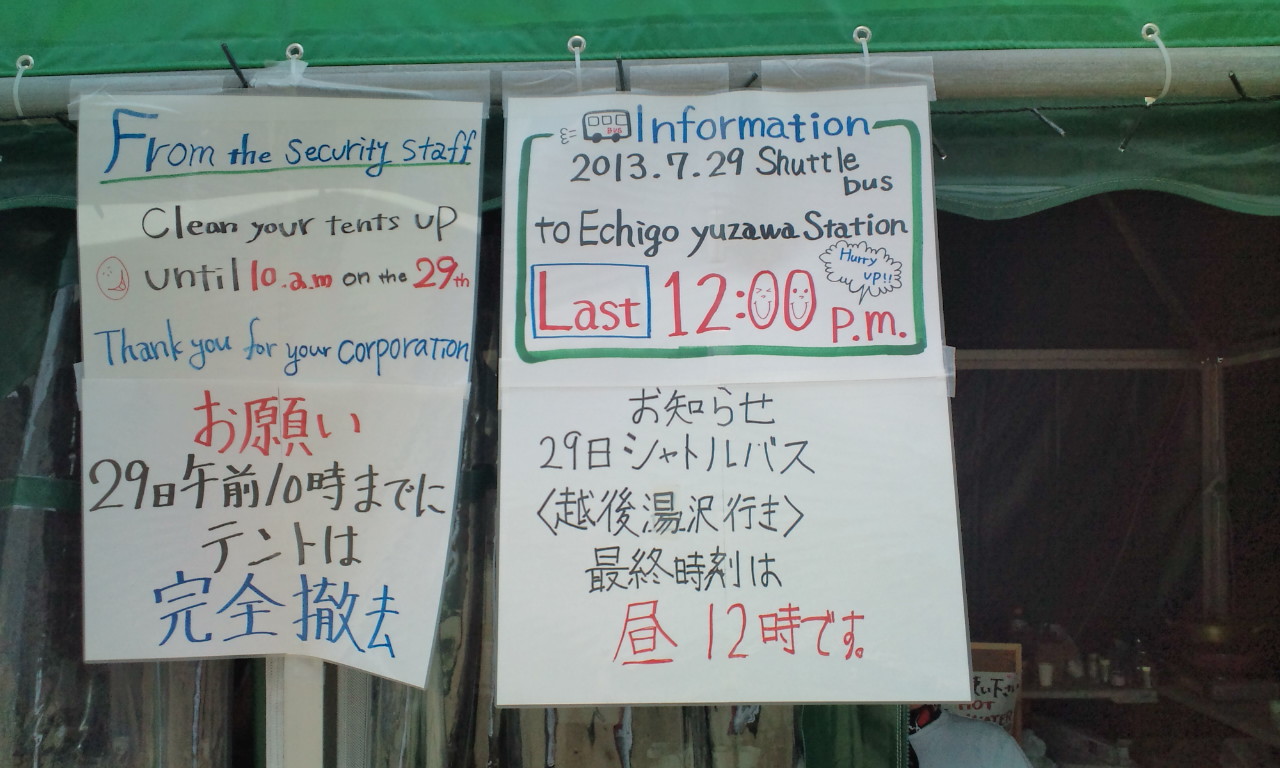 From the Security Staff
Clean your tents up
until 10.a.m on the 29th
Thank you for your corporation
お願い
29日午前10時までに
テントは
完全撤去
BUS
Information
2013.7.29 Shuttle
bus
to Echigo yuzawa Station
Hurry
up!!
Last 12:00 p.m.
お知らせ
29日シャトルバス
〈越後湯沢行き〉
最終時刻は
昼 12時です。
HOT
WATER